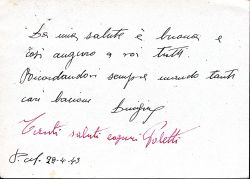 La mia salute è buona e
così auguro a voi tutti.
Ricordandovi sempre mando tanti
cari bacioni
Tanti saluti Poletti
28-4-43